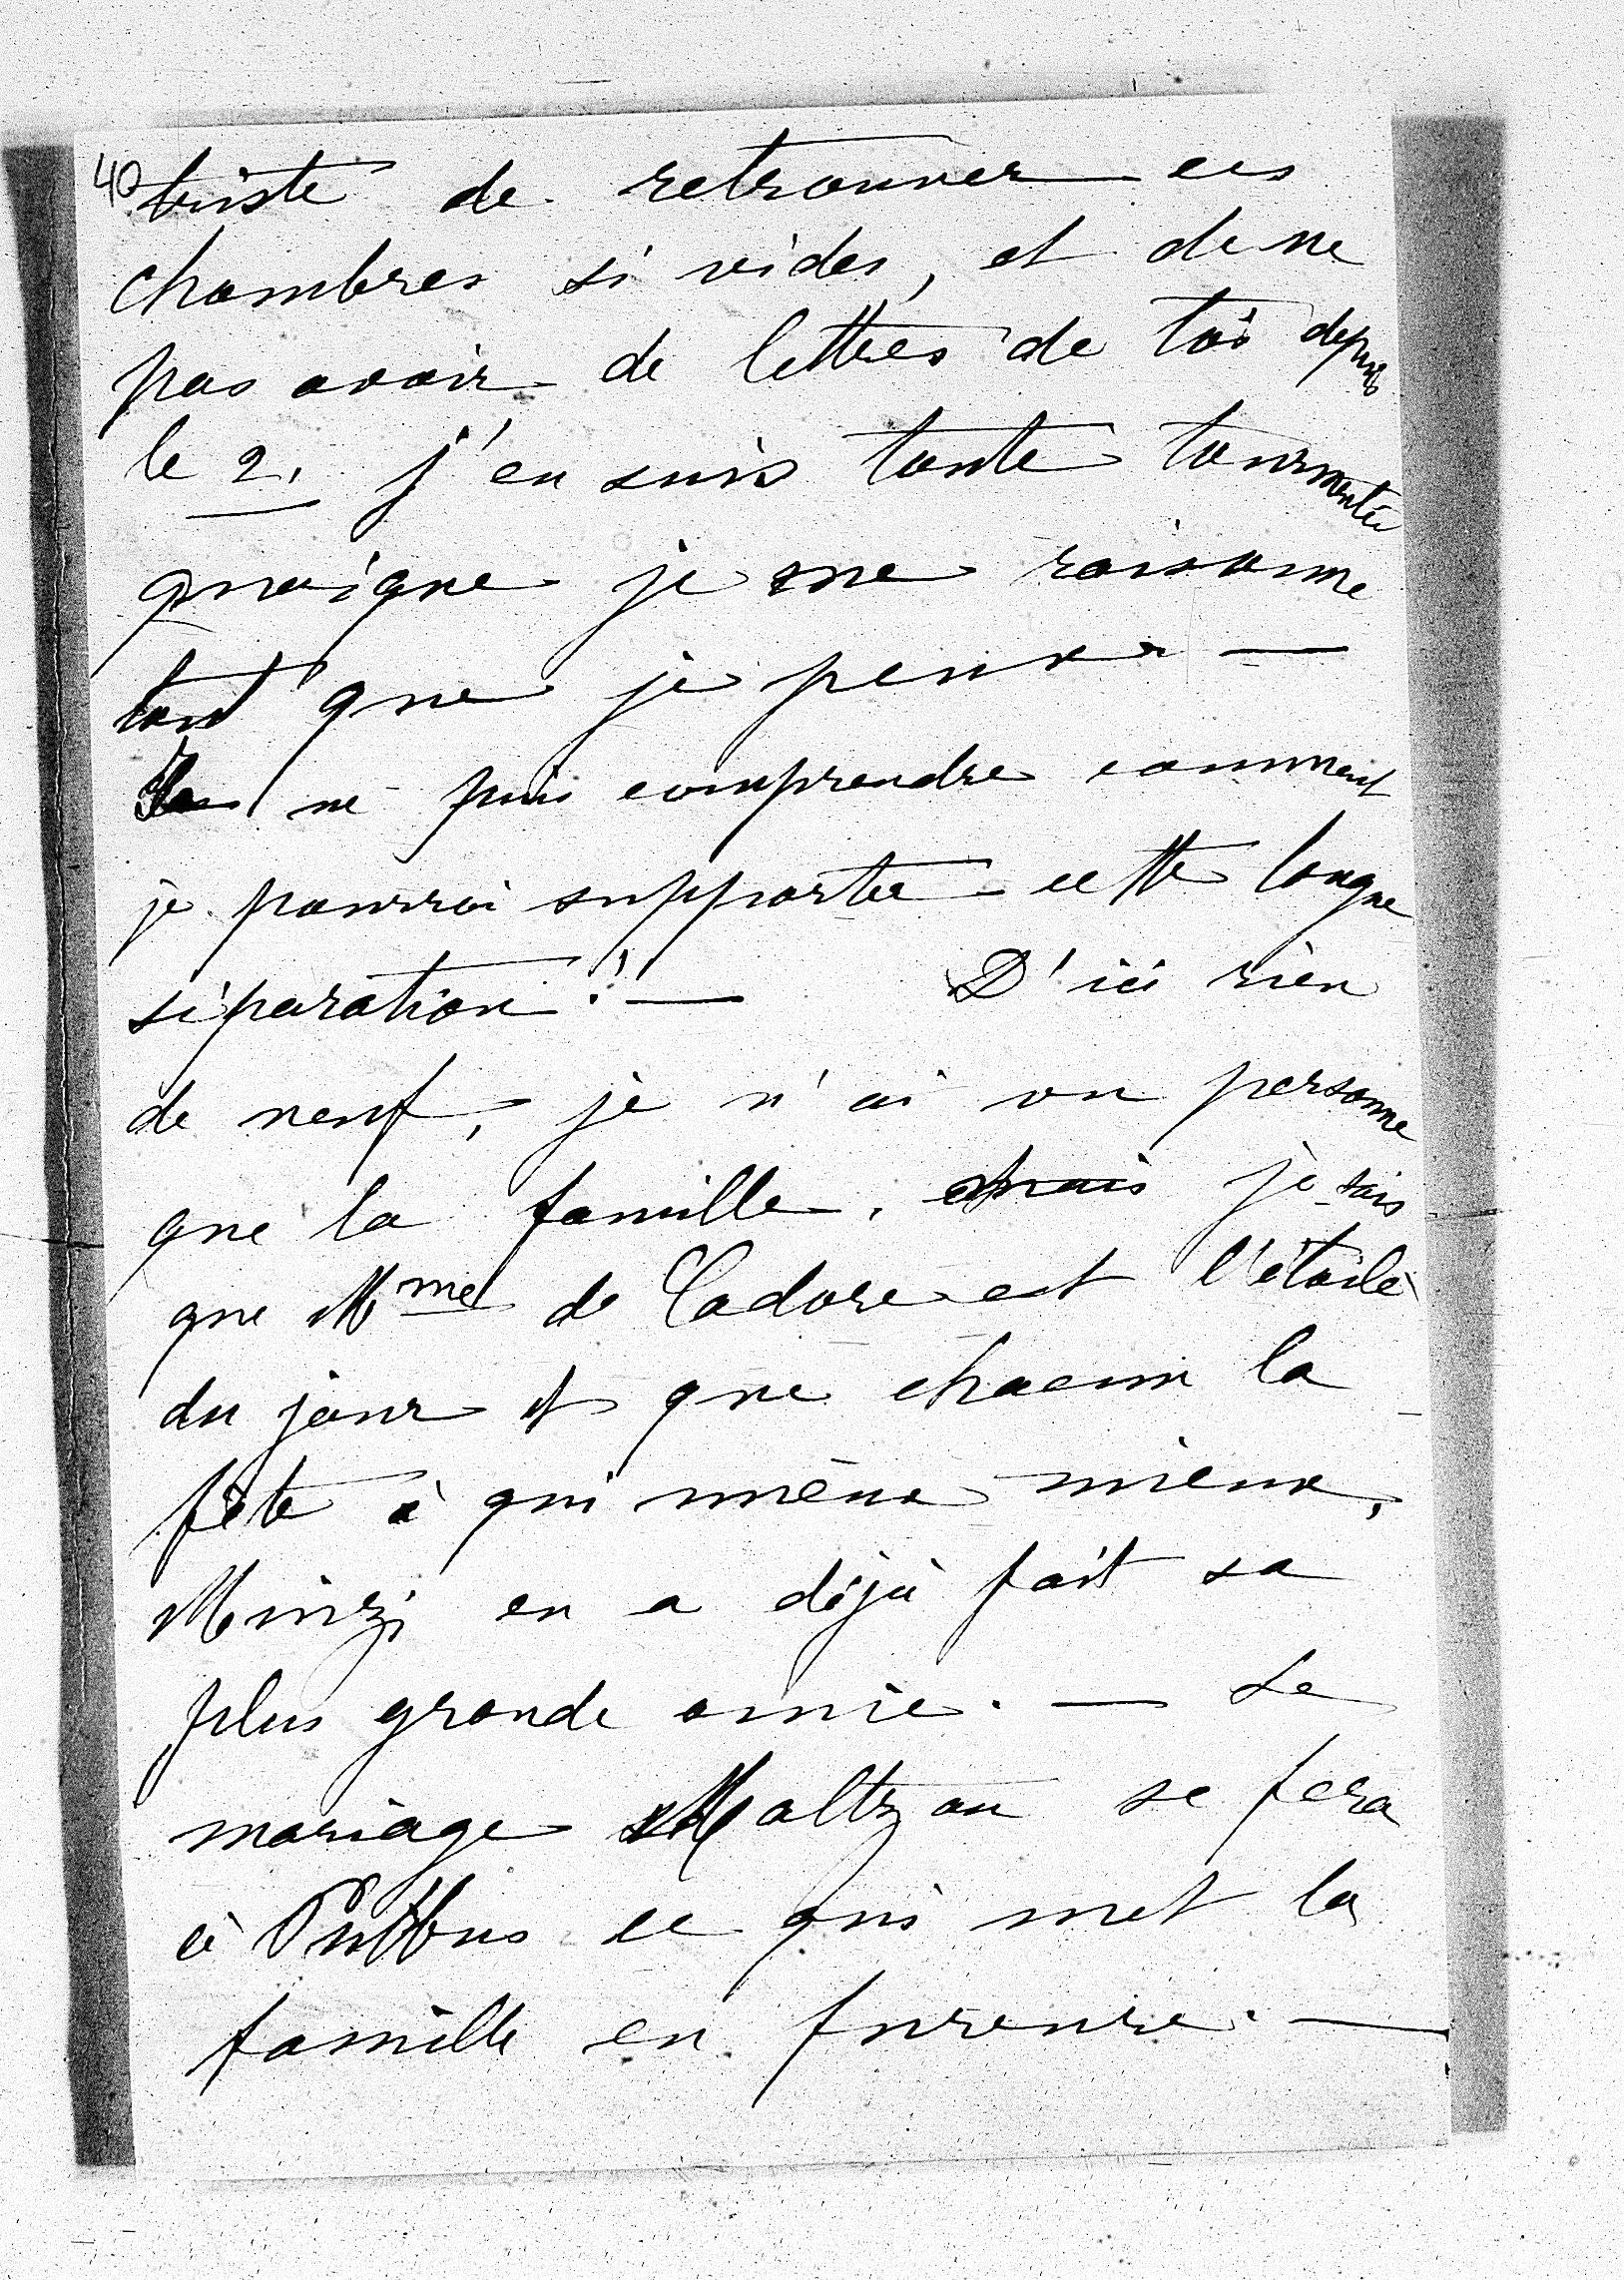 40
triste de retrouver ces
chambres si vides, et de ne
pas avoir de lettres de toi depuis
le 2. j'en suis toute tourmentée
quoique je me raisonne
tant que je peux —
Je ne puis comprendre comment
je pourrai supporter cette longue
séparation! — D'ici rien
de neuf, je n'ai vu personne
que la famille, mais je sais
que Mme de Cadore est l'étoile
du jour et que chacun la
fète à qui mieux mieux,
Minzi en a déjà fait sa
plus grande amie. — Le
mariage Maltzan se fera
à Puttbus ce qui met la
famille en fureure. —